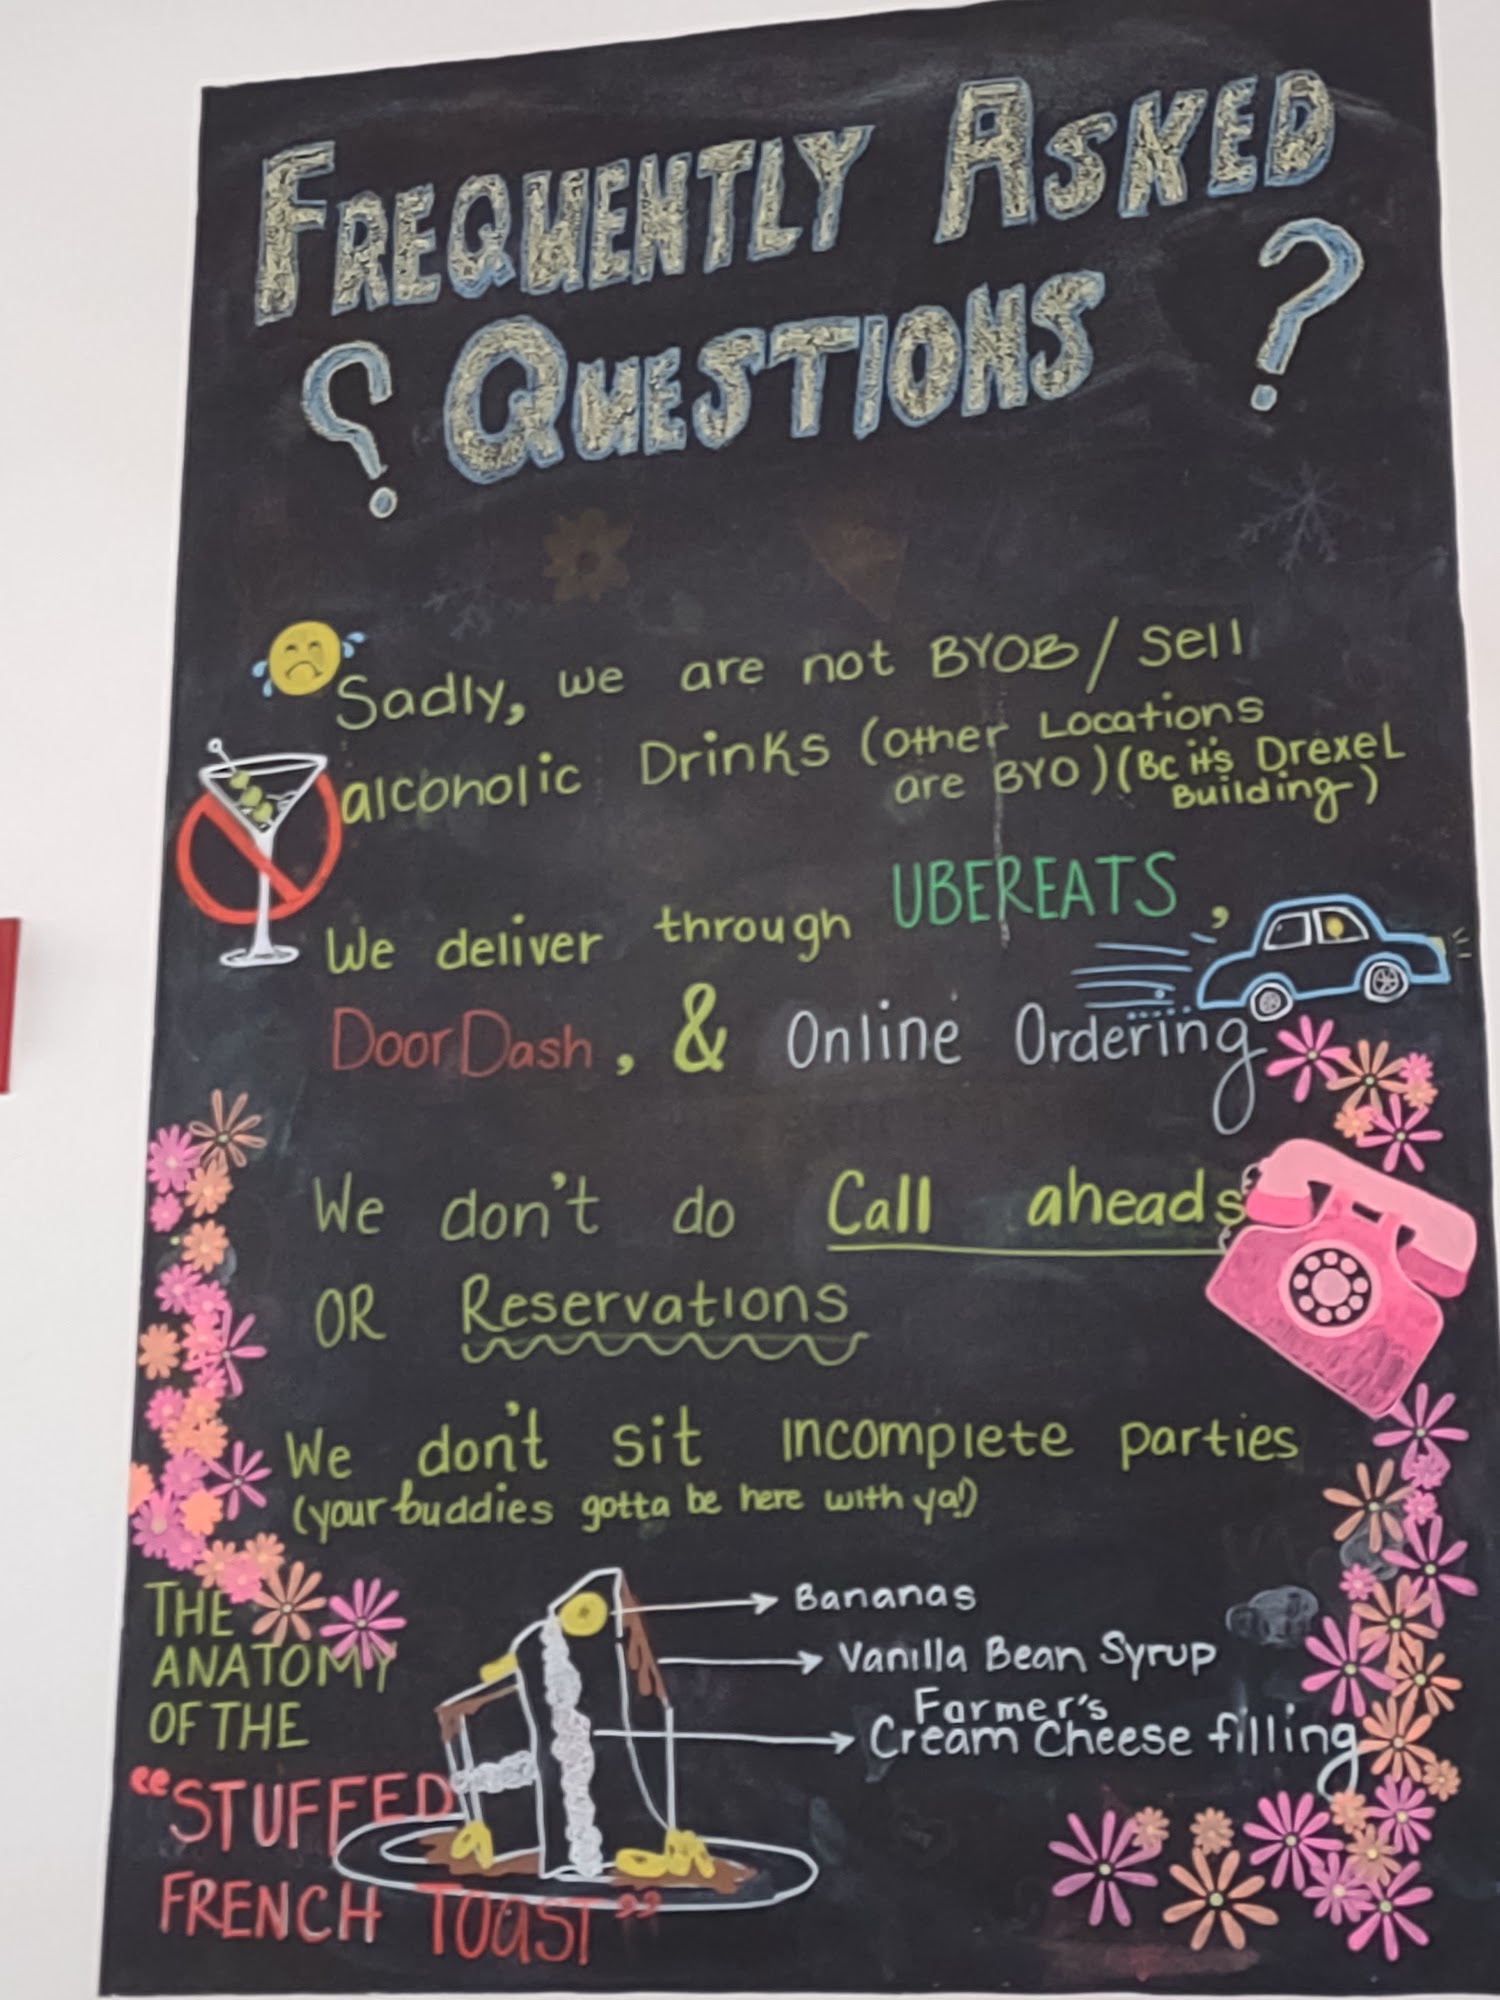 FREQUENTLY ASKED
? QUESTIONS ?
Sadly, we are not BYOB/Sell
alcoholic Drinks (other Locations
are BYO) (Bc it's Drexel
Building)
We deliver through UBEREATS,
DoorDash, & Online Ordering
We don't do Call aheads
OR Reservations
We don't sit incomplete parties
(your buddies gotta be here with ya!)
THE
ANATOMY
OF THE
"STUFFED
FRENCH TOAST"
Bananas
Vanilla Bean Syrup
Farmer's
Cream Cheese filling